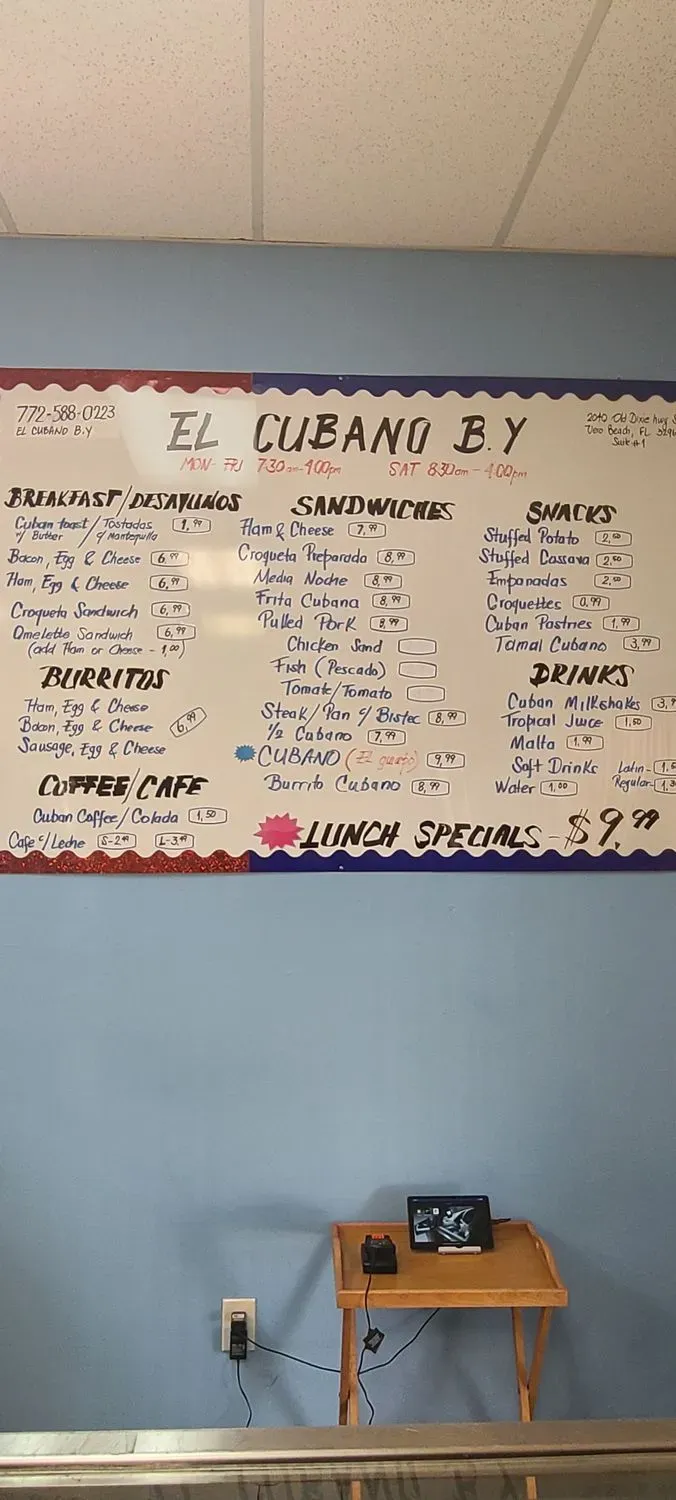 772-588-0223
EL CUBANO B.Y
EL CUBANO B.Y
MON- FRI 7:30am-4:00pm SAT 8:30am - 4:00pm
2040 Old Dixie hwy
Vero Beach, FL
Suite #1
BREAKFAST/DESAYUNOS
Cuban toast / Tostadas 1,99
w/ Butter c/ Mantequilla
Bacon, Egg & Cheese 6,99
Ham, Egg & Cheese 6,99
Croqueta Sandwich 6,99
Omelette Sandwich 6,99
(add Ham or Cheese - 1,00)
BURRITOS
Ham, Egg & Cheese
Bacon, Egg & Cheese 6,99
Sausage, Egg & Cheese
COFFEE/CAFE
Cuban Coffee/Colada 1,50
Cafe c/Leche S-2.49 L-3.49
SANDWICHES
Ham & Cheese 7,99
Croqueta Preparada 8,99
Media Noche 8,99
Frita Cubana 8,99
Pulled Pork 8,99
Chicken Sand
Fish (Pescado)
Tomate/Tomato
Steak/Pan c/ Bistec 8,99
1/2 Cubano 7,99
CUBANO (El guapo) 9,99
Burrito Cubano 8,99
SNACKS
Stuffed Potato 2,50
Stuffed Cassava 2,50
Empanadas 2,50
Croquettes 0,99
Cuban Pastries 1,99
Tamal Cubano 3,99
DRINKS
Cuban Milkshakes
Tropical Juice 1,50
Malta 1,99
Soft Drinks Latin-
Regular-
Water 1,00
LUNCH SPECIALS - $9.99